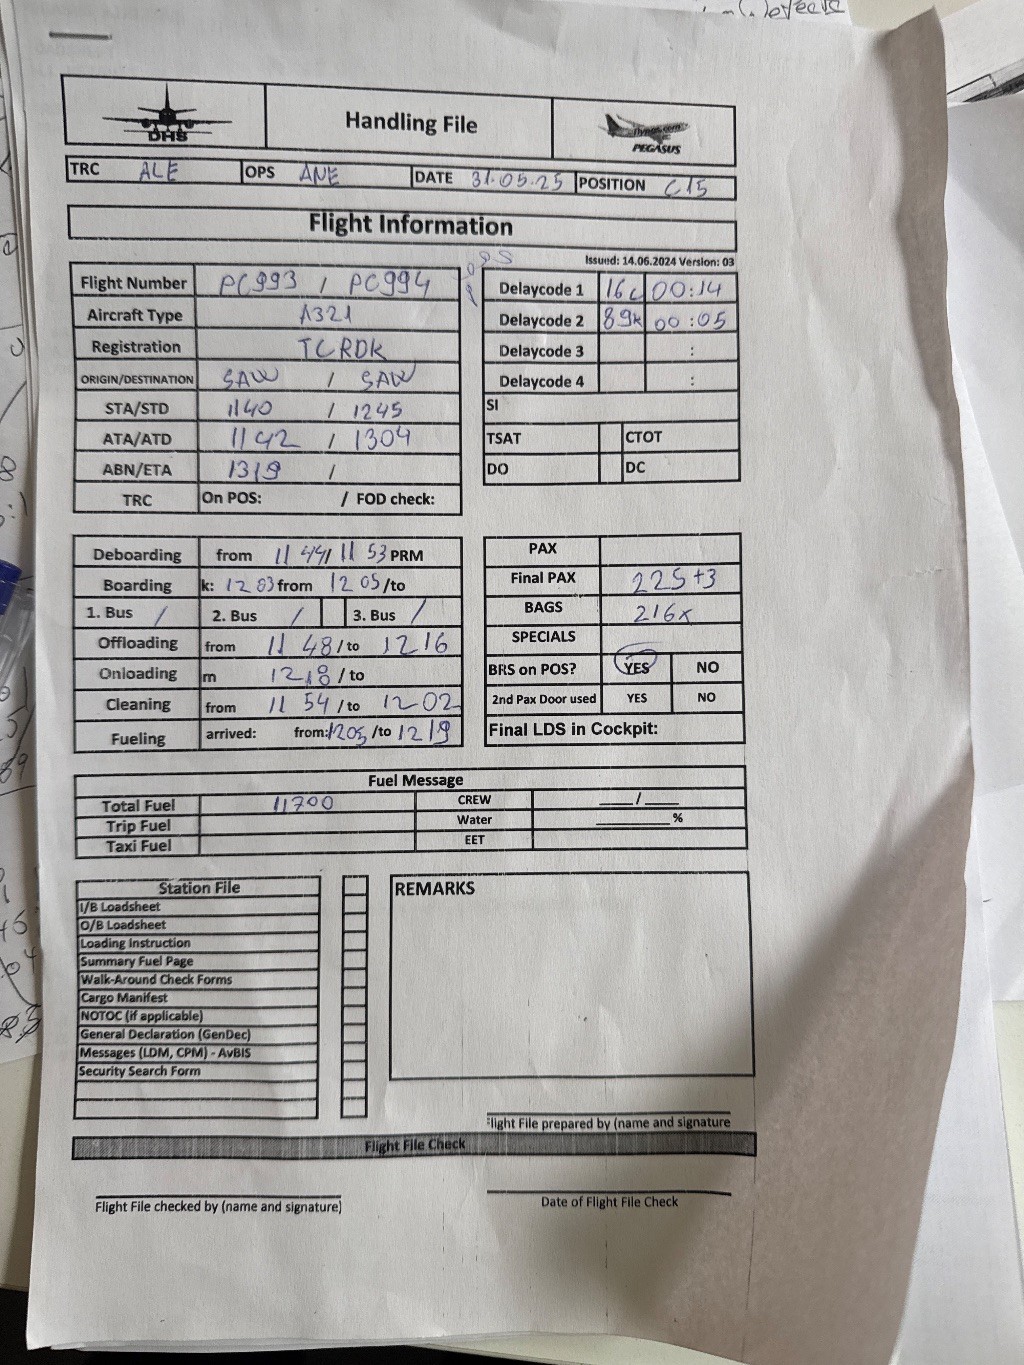 DHS
Handling File
flypgs.com
PEGASUS
TRC ALE OPS ANE DATE 31.05.25 POSITION C15
Flight Information
Issued: 14.06.2024 Version: 03
Flight Number PC993 / PC994
Aircraft Type A321
Registration TCRDK
ORIGIN/DESTINATION SAW / SAW
STA/STD 1140 / 1245
ATA/ATD 1142 / 1304
ABN/ETA 1319 /
TRC On POS: / FOD check:
Delaycode 1 16c 00:14
Delaycode 2 89k 00:05
Delaycode 3 :
Delaycode 4 :
SI
TSAT CTOT
DO DC
Deboarding from 11 44/ 11 53 PRM
Boarding k: 12 03 from 12 05 /to
1. Bus / 2. Bus / 3. Bus /
Offloading from 11 48 / to 12 16
Onloading m 1218 / to
Cleaning from 11 54 / to 12 02
Fueling arrived: from: 1205 /to 1219
PAX
Final PAX 225+3
BAGS 216x
SPECIALS
BRS on POS? YES NO
2nd Pax Door used YES NO
Final LDS in Cockpit:
Fuel Message
Total Fuel 11700 CREW ____/____
Trip Fuel Water ________%
Taxi Fuel EET
Station File
I/B Loadsheet
O/B Loadsheet
Loading Instruction
Summary Fuel Page
Walk-Around Check Forms
Cargo Manifest
NOTOC (if applicable)
General Declaration (GenDec)
Messages (LDM, CPM) - AvBIS
Security Search Form
REMARKS
light File prepared by (name and signature
Flight File Check
Flight File checked by (name and signature)
Date of Flight File Check